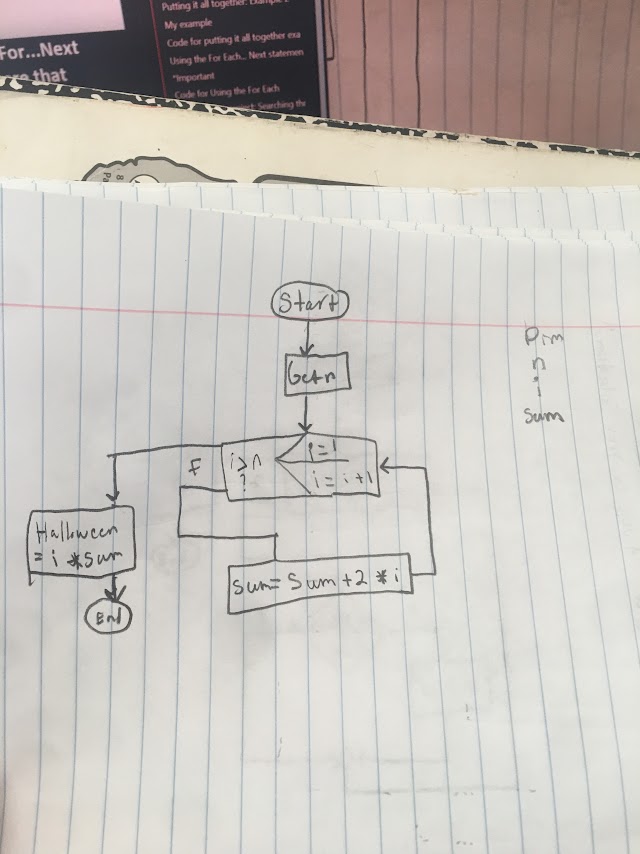 Putting it all together: Example
My example
Code for putting it all together exa
Using the For Each... Next statemen
*Important
Code for Using the For Each
Searching the
For...Next
that
8
Pa
Start
Get n
i>n
?
i=1
i=i+1
F
Halloween
= i *sum
End
Sum=Sum+2*i
Dim
n
i
Sum